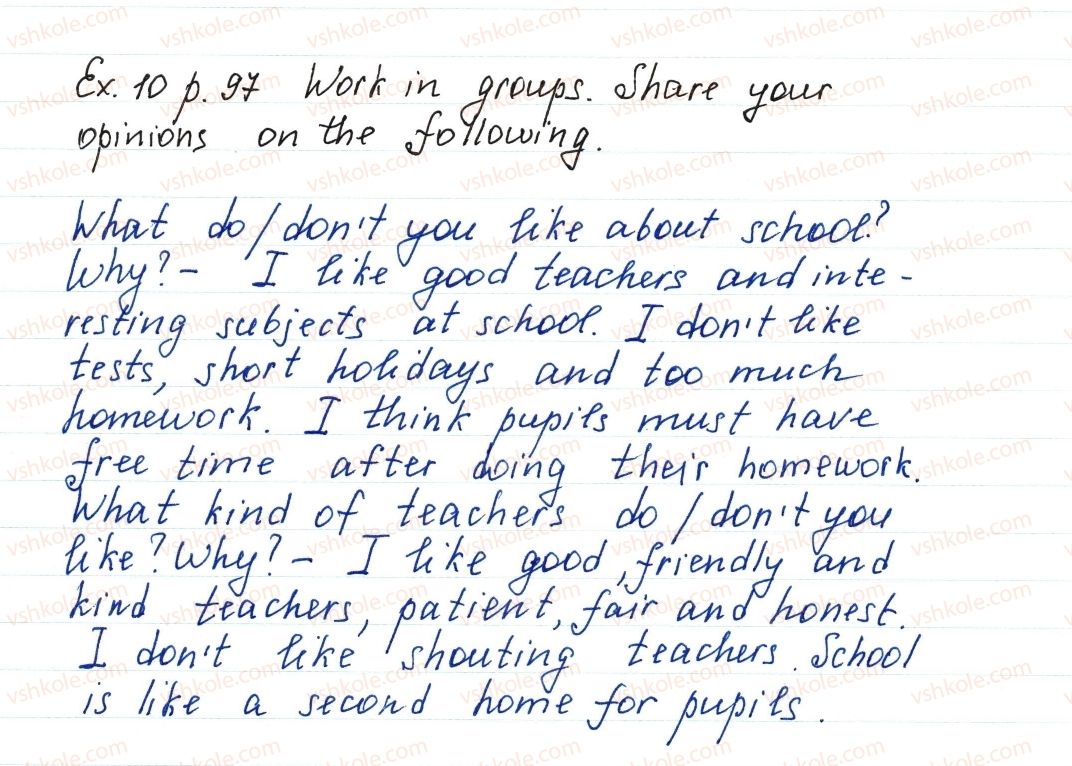 Ex. 10 p. 97 Work in groups. Share your
opinions on the following.
What do/don't you like about school?
Why? - I like good teachers and inte-
resting subjects at school. I don't like
tests, short holidays and too much
homework. I think pupils must have
free time after doing their homework.
What kind of teachers do/don't you
like? Why? - I like good, friendly and
kind teachers, patient, fair and honest.
I don't like shouting teachers. School
is like a second home for pupils.
vshkole.com